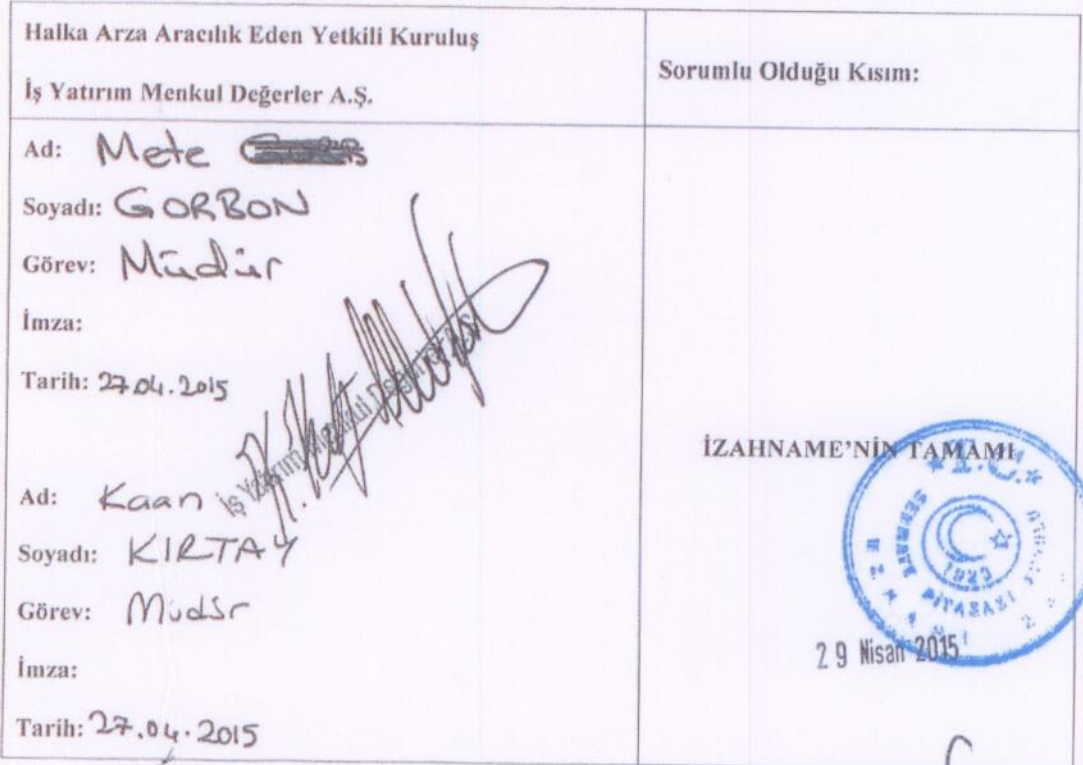 Halka Arza Aracılık Eden Yetkili Kuruluş
İş Yatırım Menkul Değerler A.Ş.
Sorumlu Olduğu Kısım:
Ad: Mete
Soyadı: GORBON
Görev: Müdür
İmza:
Tarih: 27.04.2015
İş Yatırım Menkul Değerler A.Ş.
Ad: Kaan
Soyadı: KIRTAY
Görev: Müdür
İmza:
Tarih: 27.04.2015
İZAHNAME'NİN TAMAMI
T.C.
SERMAYE PİYASASI
1923
29 Nisan 2015